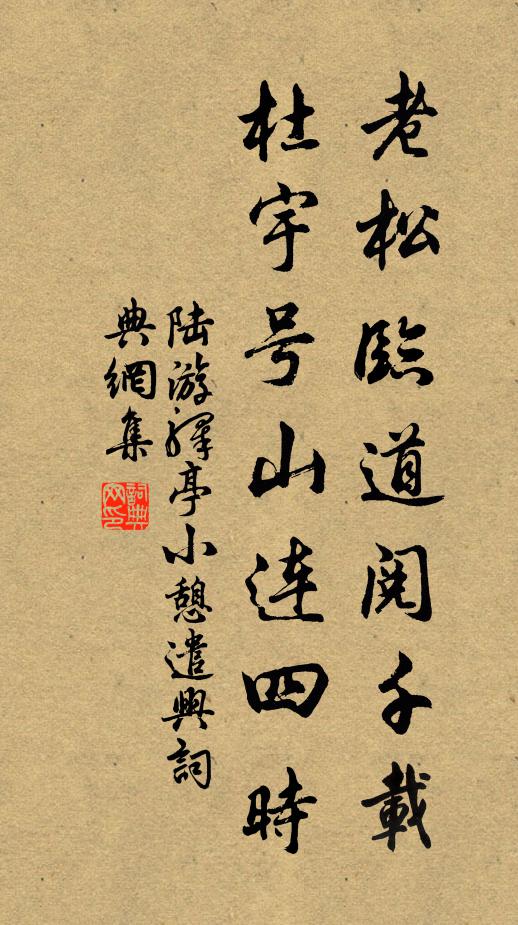 老松臨道閱千載
杜宇号山連四時
陆游驛亭小憩遣興詞
典網集
詞典
网印